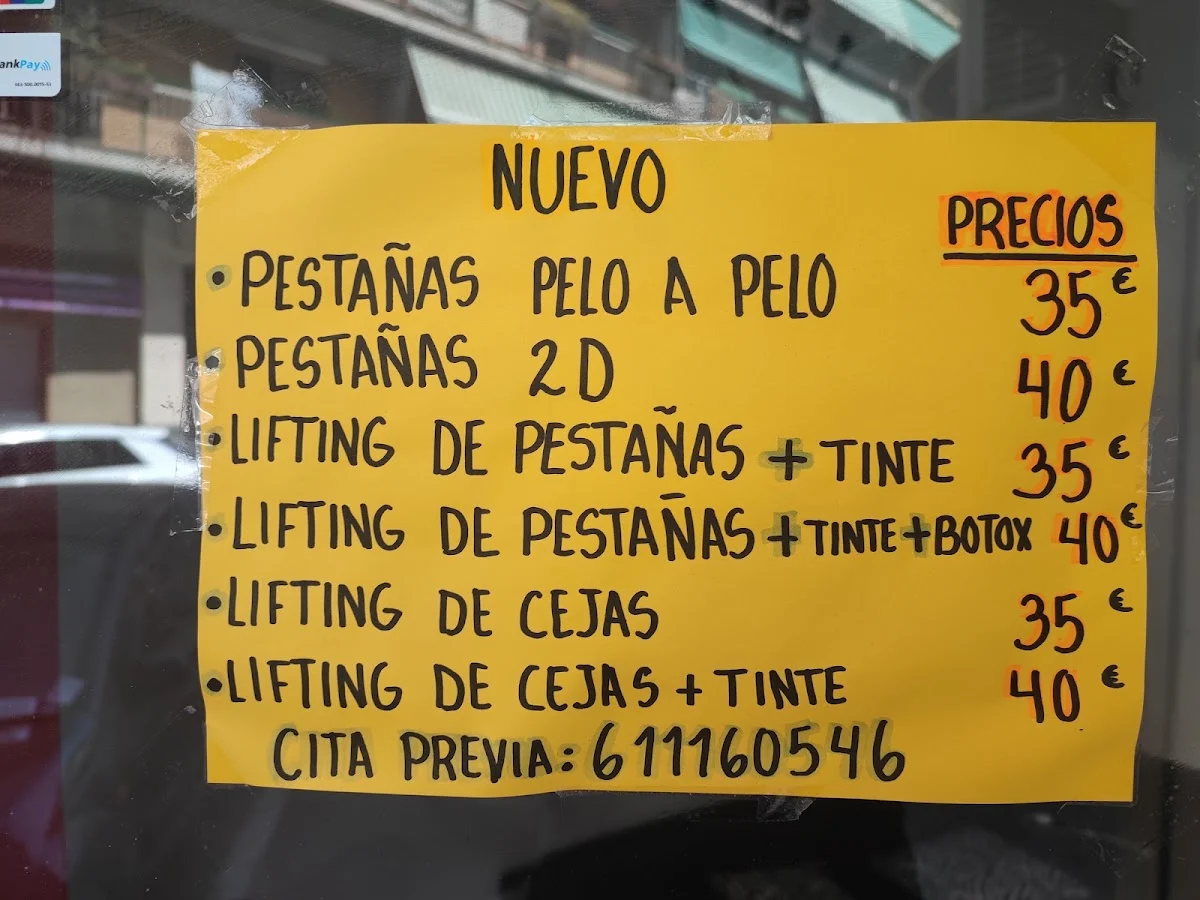 ankPay
NUEVO
PRECIOS
• PESTAÑAS PELO A PELO 35€
• PESTAÑAS 2D 40€
• LIFTING DE PESTAÑAS + TINTE 35€
• LIFTING DE PESTAÑAS + TINTE + BOTOX 40€
• LIFTING DE CEJAS 35€
• LIFTING DE CEJAS + TINTE 40€
CITA PREVIA: 611160546